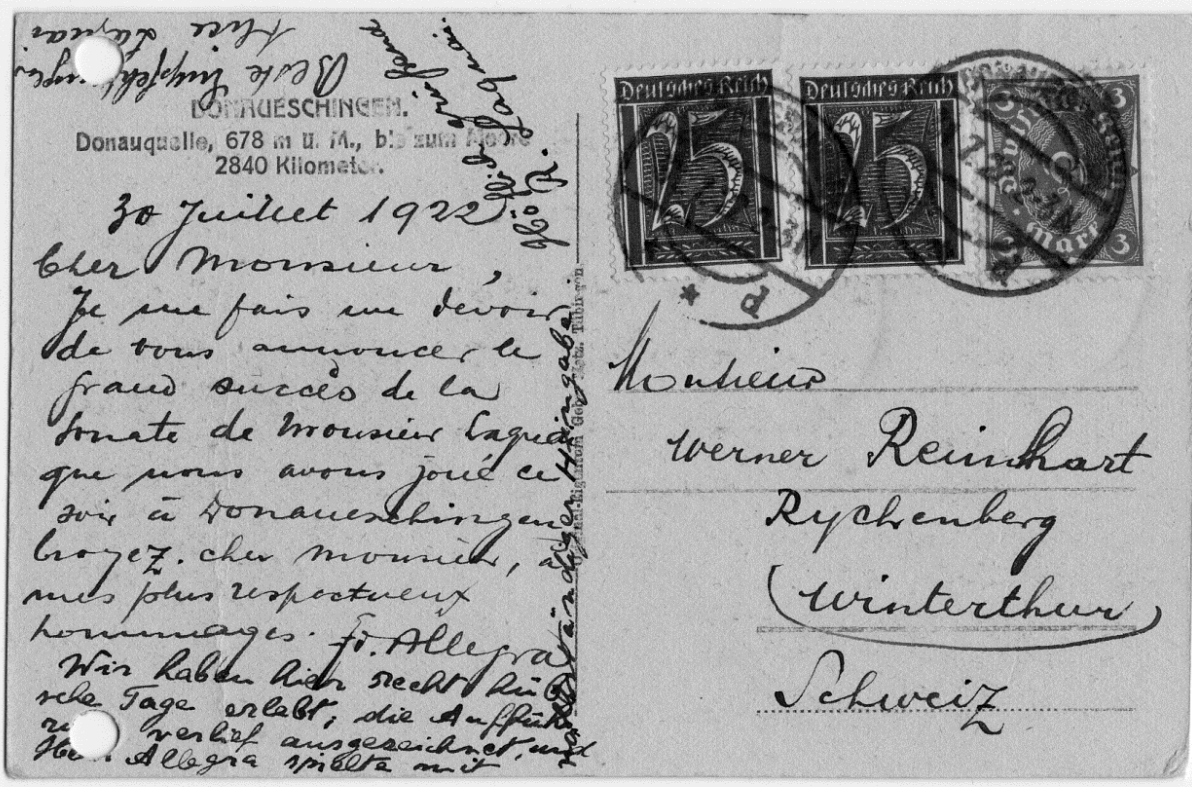 DONAUESCHINGEN.
Donauquelle, 678 m ü. M., bis zum Meere
2840 Kilometer.
30 Juillet 1922
Cher Monsieur,
Je me fais un devoir
de vous annoncer le
grand succès de la
Sonate de Monsieur Laquai
que nous avons joué ce
soir à Donaueschingen
Croyez. cher Monsieur, à
mes plus respectueux
hommages. Fr. Allegra
Wir haben hier recht hüb
sche Tage erlebt, die Aufführ
verlief ausgezeichnet, und
Herr Allegra spielte mit
vollständiger Hingabe.
Höflich grüssend
R. Laquai.
Beste Empfehlungen
Alice Laquai
Gebr. Metz, Tübingen
Deutsches Reich
25
Deutsches Reich
25
3
3
3
3
Mark
d
Monsieur
Werner Reinhart
Rychenberg
(Winterthur)
Schweiz